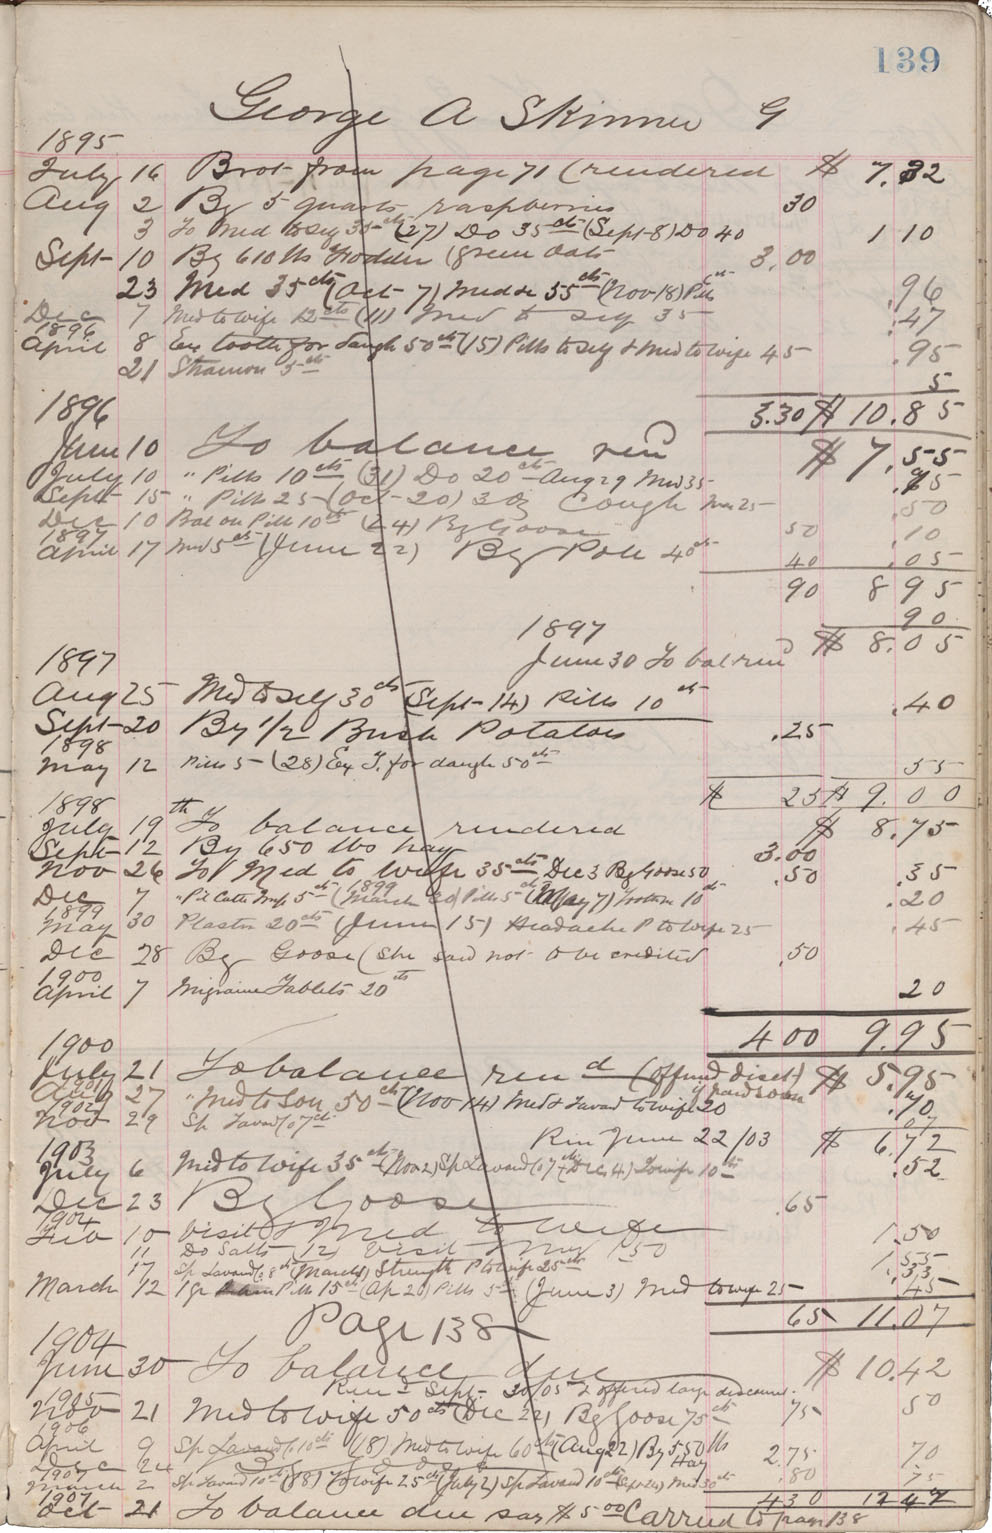 139
George A Skinner G
1895
July 16 Brot from page 71 (rendered $ 7.32
Aug 2 By 5 quarts raspberries 30
3 To Med to self 35cts (27) Do 35cts (Sept 8) Do 40 1 10
Sept 10 By 610 lbs Fodder (green oats 3.00
23 Med 35cts (Oct 7) Med &c 55cts (Nov 18) Pills .96
Dec 7 Med to wife 12cts (11) Med to self 35 .47
1896
April 8 Ex tooth for daugh 50cts (15) Pills to self & Med to wife 45 .95
21 Stramon 5cts 5
3.30 $ 10.85
1896
June 10 To balance ren $ 7.55
July 10 " Pills 10cts (31) Do 20cts Aug 29 Med 35
Sept 15 " Pills 25 (Oct 20) 3 oz Cough 25 .50
Dec 10 Bal on Pills 10cts (24) By Goose 50 .10
1897
April 17 Med 5cts (June 22) By Pole 40cts 40 .05
90 8 95
90
1897
June 30 To bal rend $ 8.05
1897
Aug 25 Med to self 30cts (Sept 14) Pills 10cts .40
Sept 20 By 1/2 Bush Potatoes .25
1898
May 12 Pills 5 (28) Ex T. for daugh 50cts 55
$ 25 $ 9.00
1898
July 19th To balance rendered $ 8.75
Sept 12 By 650 lbs hay 3.00
Nov 26 To Med to wife 35cts Dec 3 By Goose 50 .50 .35
Dec 7 " 5cts (March 30) Pills 5cts (May 7) 10cts .20
1899
1899
May 30 Plaster 20cts (June 15) Headache P to wife 25 .45
Dec 28 By Goose (she said not to be credited .50
1900
April 7 Migraine Tablets 20cts 20
4 00 9.95
1900
July 21 To balance rend (offered disct $ 5.95
if paid soon
1901
Aug 27 " Med to Son 50cts (Nov 14) Med & Lavand to wife 20 .70
1902
Nov 29 Sp Lavand (07cts .07
Ren June 22/03 $ 6.72
1903
July 6 Med to Wife 35cts (Nov 2) Sp Lavand (07cts (Dec 4) To wife 10cts .52
Dec 23 By Goose .65
1904
Feb 10 Visit & Med to wife 1.50
11 Do Salts (12) Visit & Med 1.50 1.55
17 Sp Lavand (8cts (March 1) Strength P to wife 25cts .33
March 12 1 gr Pills 15cts (Ap 20) Pills 5cts (June 3) Med to wife 25 .45
65 11.07
Page 138
1904
June 30 To balance due $ 10.42
Ren Sept 30/05 & offered large discount.
1905
Nov 21 Med to wife 50cts (Dec 22) By Goose 75cts 75 50
1906
April 9 Sp Lavand (10cts (18) Med to wife 60cts (Aug 22) By 550 lbs Hay 2.75 70
Dec 24 .80
1907
March 2 Sp Lavand 10cts (18) To wife 25cts (July 2) Sp Lavand 10cts (Sept 24) Med 30cts 75
4 30 12 47
1907
Oct 21 To balance due say $5.00 Carried to page 138